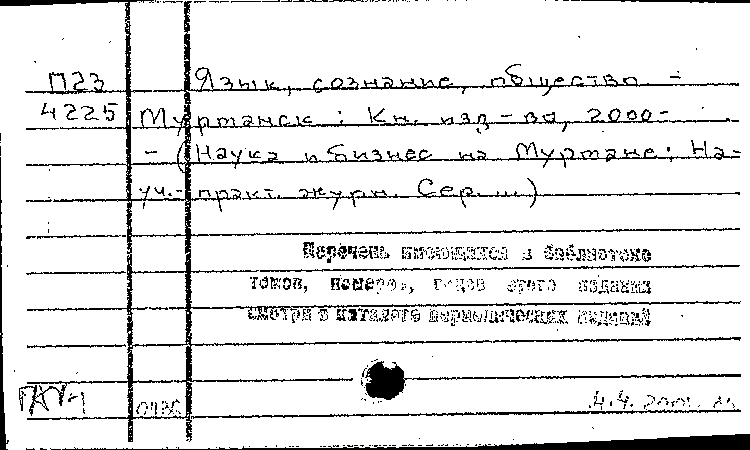 П23 Язык, сознание, общество. -
4225 Мурманск: Кн. изд-во, 2000-
- (Наука и бизнес на Мурмане: На-
уч.-практ. журн. Сер. ...)
Перечень имеющихся в библиотеке
томов, номеров, годов этого издания
смотри в каталоге периодических изданий
4.4.2001.